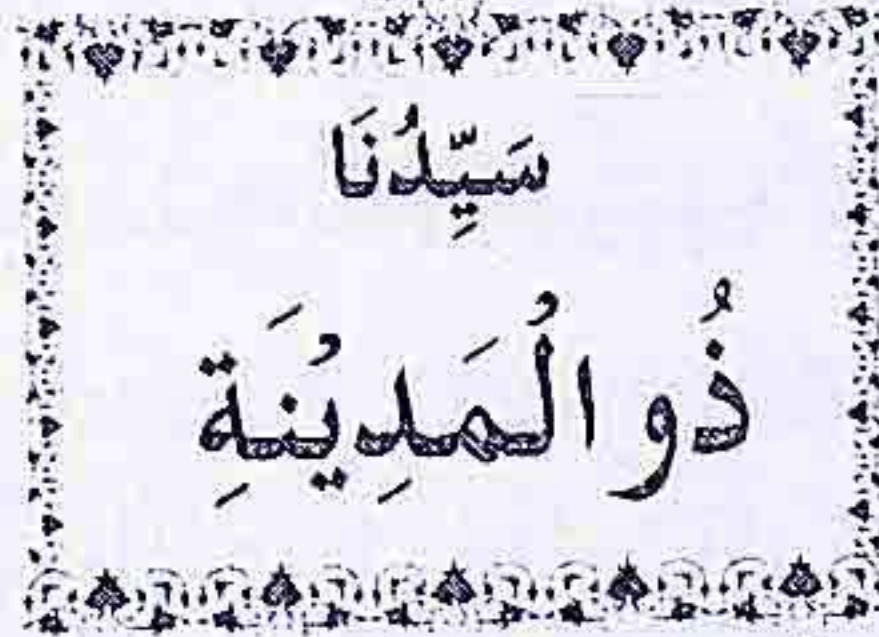 سَيِّدُنَا
ذُو الْمَدِيْنَةِ